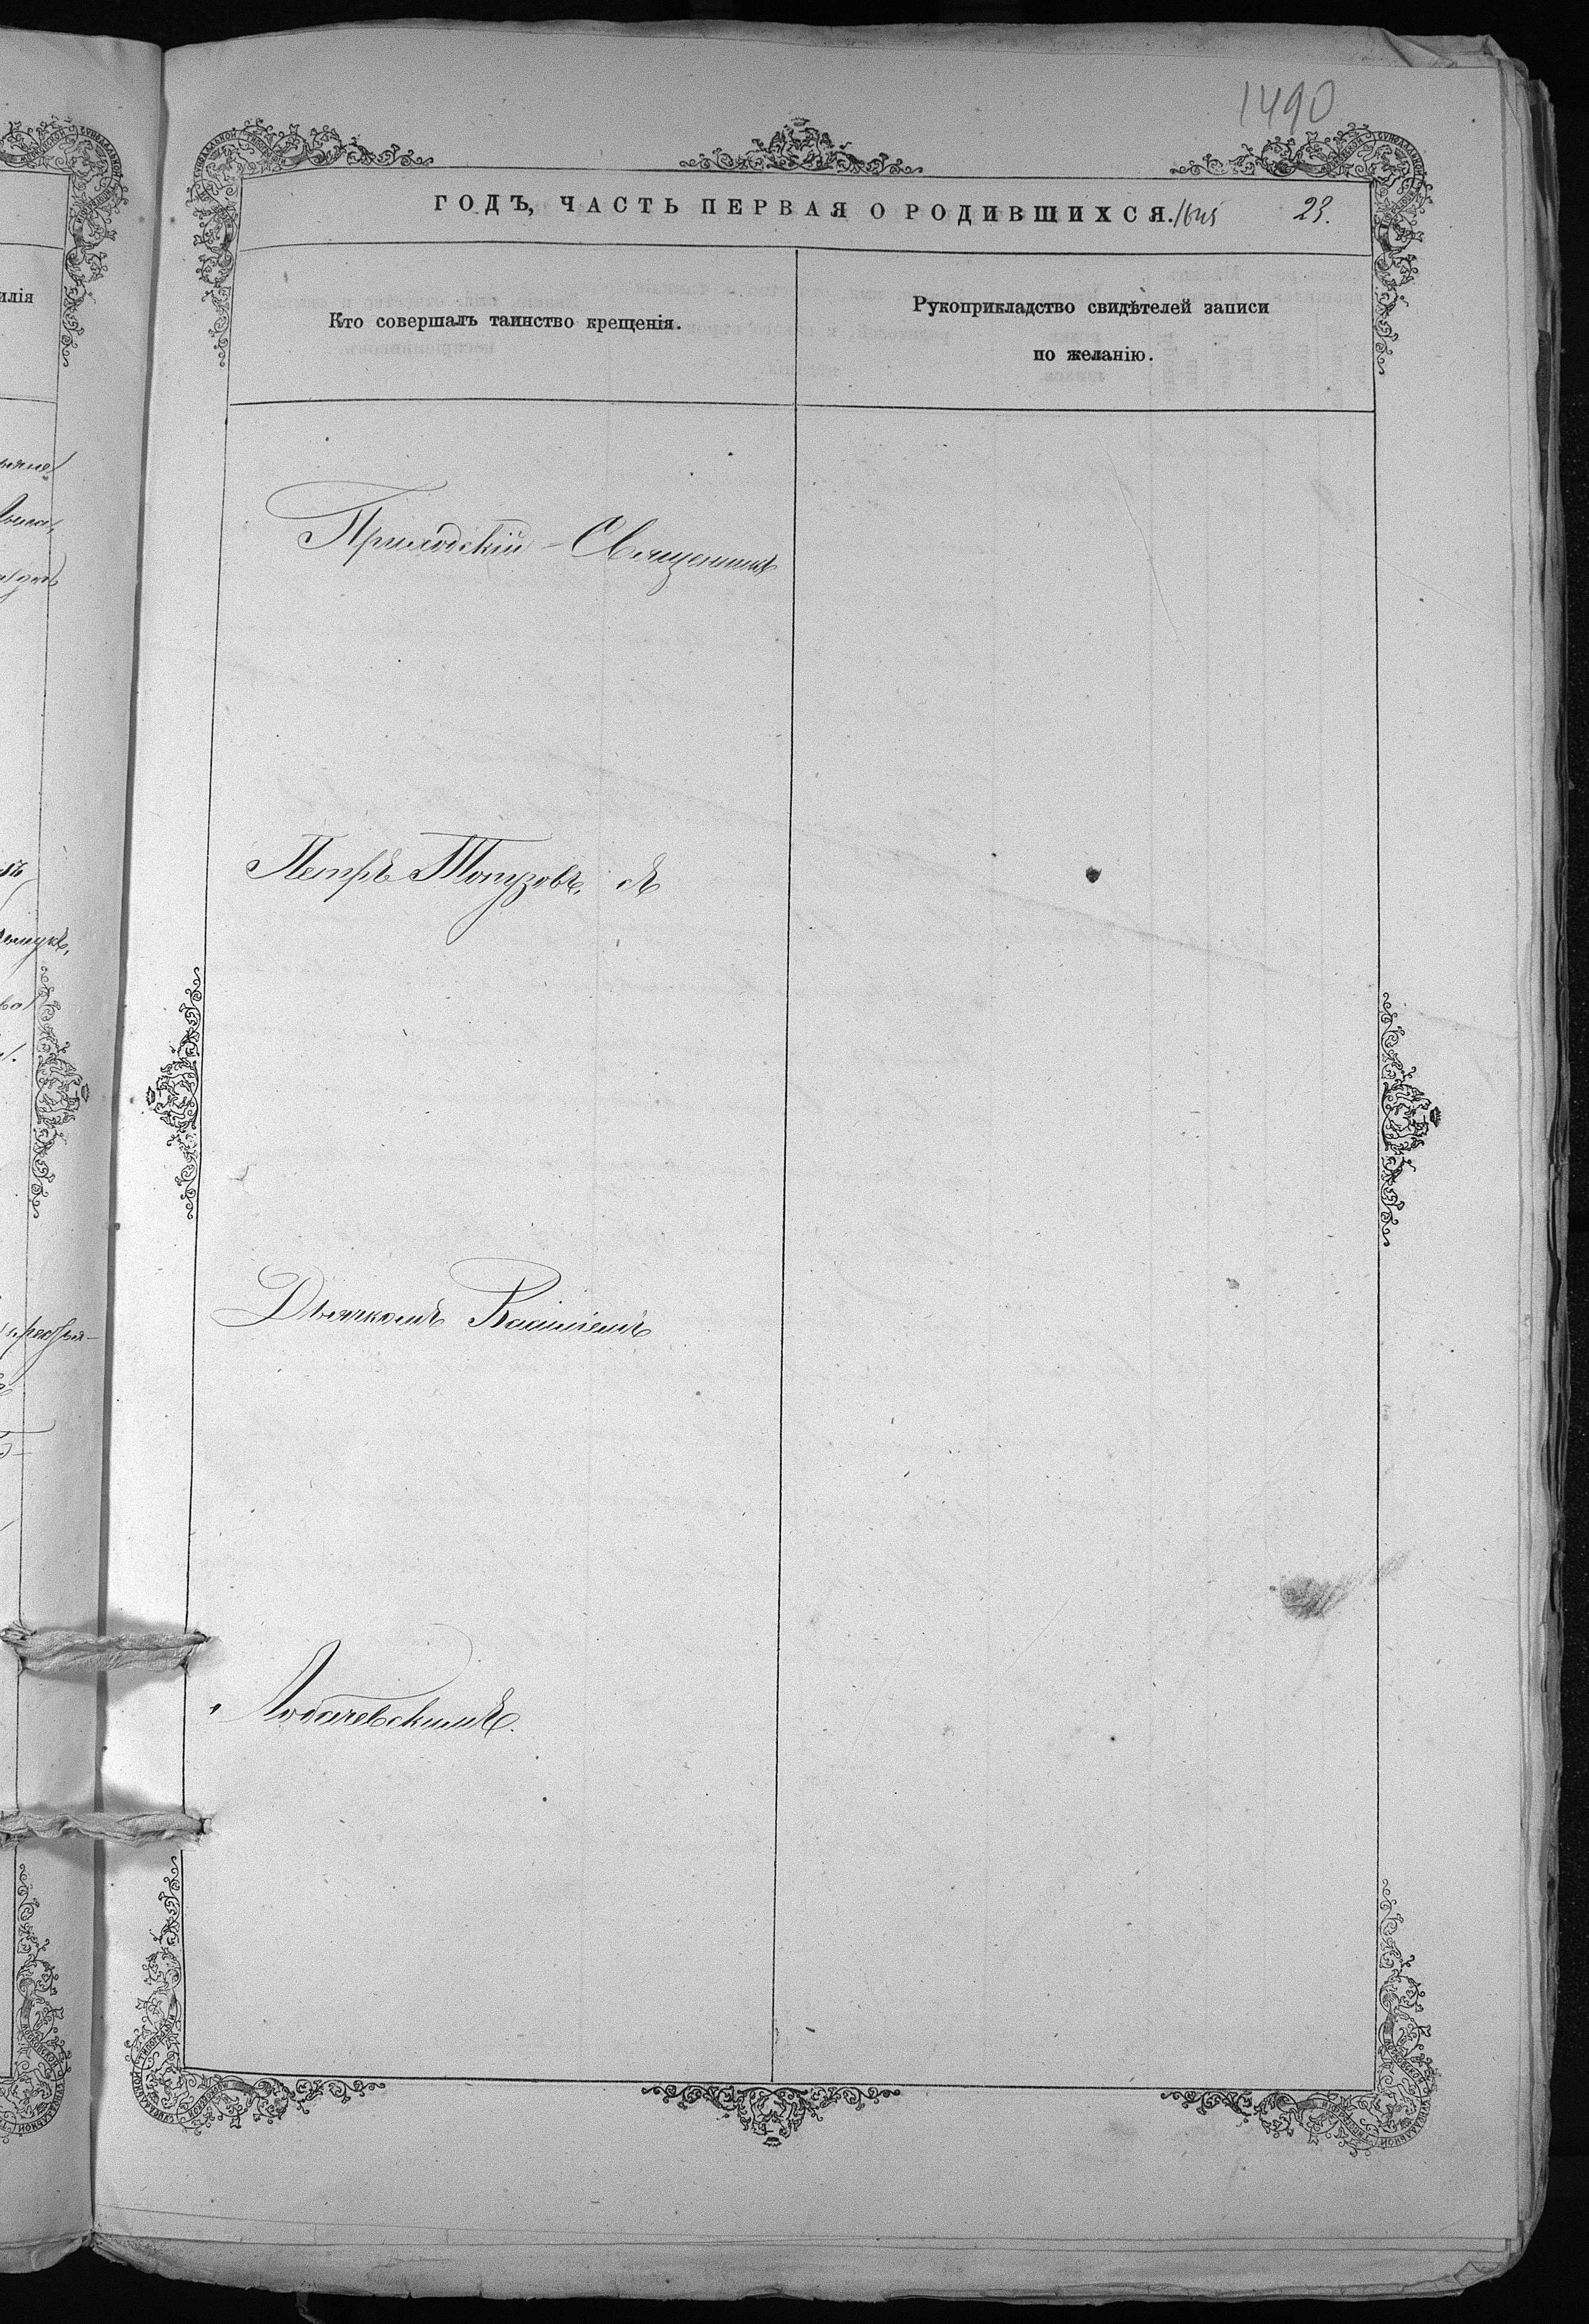 1490
ГОДЪ, ЧАСТЬ ПЕРВАЯ О РОДИВШИХСЯ. 23.
илія
Кто совершалъ таинство крещенія.
Рукоприкладство свидѣтелей записи
по желанію.
Приходскій - Священникъ
Петръ Топузовъ, съ
Дьячкомъ Василіемъ
Лобачевскимъ.